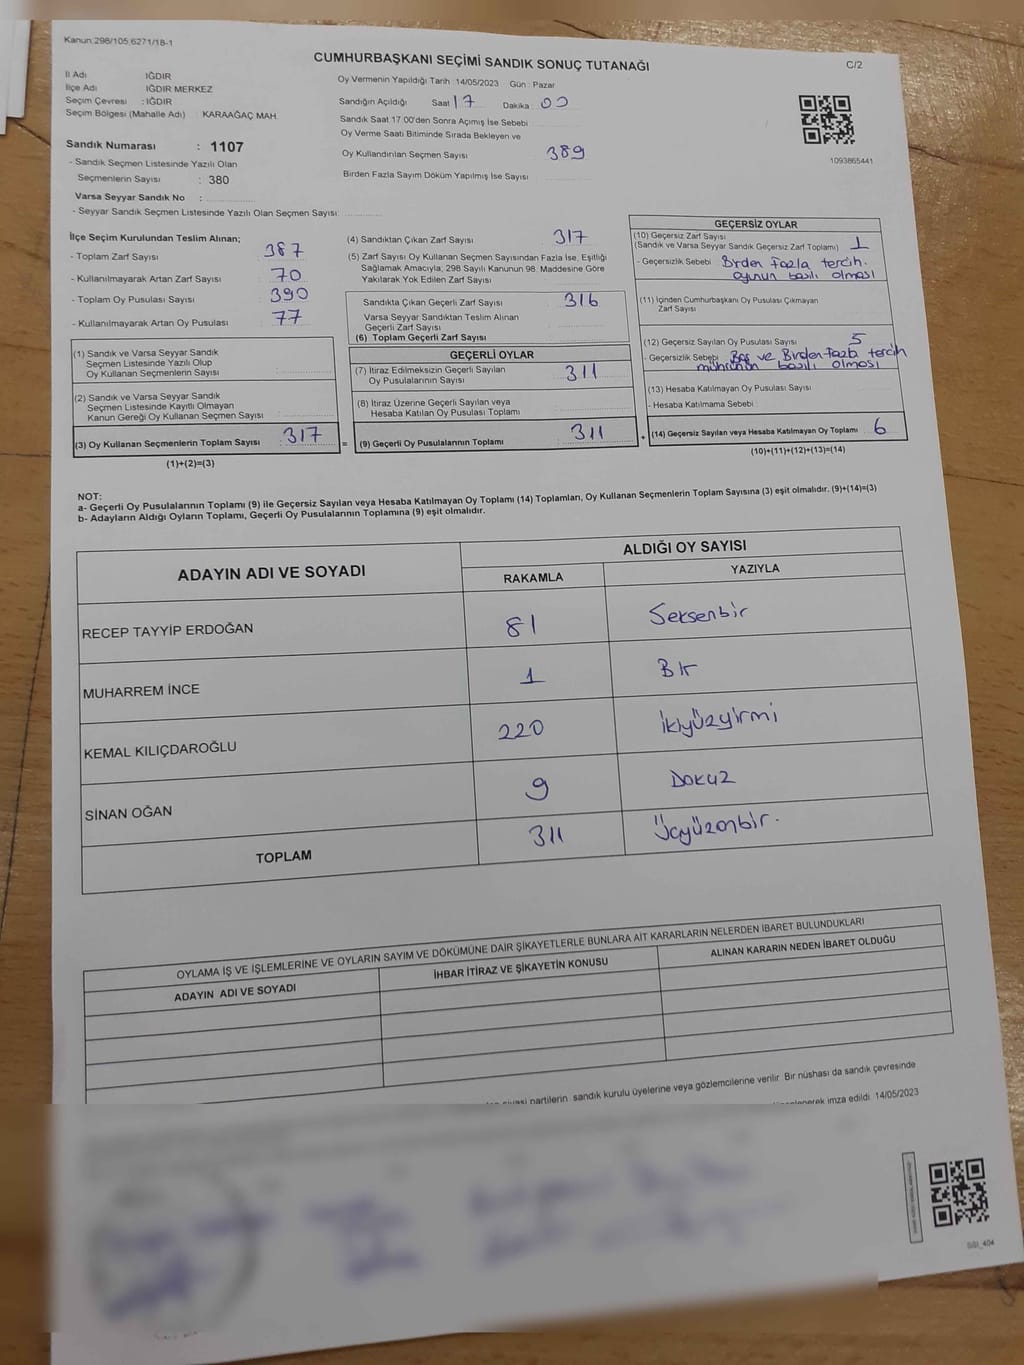 Kanun:298/105;6271/18-1
CUMHURBAŞKANI SEÇİMİ SANDIK SONUÇ TUTANAĞI
C/2
İl Adı IĞDIR
İlçe Adı IĞDIR MERKEZ
Seçim Çevresi : IĞDIR
Seçim Bölgesi (Mahalle Adı) KARAAĞAÇ MAH.
Sandık Numarası : 1107
- Sandık Seçmen Listesinde Yazılı Olan
Seçmenlerin Sayısı : 380
Varsa Seyyar Sandık No :
- Seyyar Sandık Seçmen Listesinde Yazılı Olan Seçmen Sayısı:
Oy Vermenin Yapıldığı Tarih :14/05/2023 Gün : Pazar
Sandığın Açıldığı Saat 17 Dakika : 00
Sandık Saat 17:00'den Sonra Açımış İse Sebebi
Oy Verme Saati Bitiminde Sırada Bekleyen ve
Oy Kullandırılan Seçmen Sayısı 389
Birden Fazla Sayım Döküm Yapılmış İse Sayısı
1093865441
İlçe Seçim Kurulundan Teslim Alınan;
- Toplam Zarf Sayısı : 387
- Kullanılmayarak Artan Zarf Sayısı : 70
- Toplam Oy Pusulası Sayısı : 390
- Kullanılmayarak Artan Oy Pusulası : 77
(1) Sandık ve Varsa Seyyar Sandık
Seçmen Listesinde Yazılı Olup
Oy Kullanan Seçmenlerin Sayısı
(2) Sandık ve Varsa Seyyar Sandık
Seçmen Listesinde Kayıtlı Olmayan
Kanun Gereği Oy Kullanan Seçmen Sayısı
(3) Oy Kullanan Seçmenlerin Toplam Sayısı : 317
(1)+(2)=(3)
=
(4) Sandıktan Çıkan Zarf Sayısı 317
(5) Zarf Sayısı Oy Kullanan Seçmen Sayısından Fazla İse, Eşitliği
Sağlamak Amacıyla, 298 Sayılı Kanunun 98. Maddesine Göre
Yakılarak Yok Edilen Zarf Sayısı
Sandıkta Çıkan Geçerli Zarf Sayısı 316
Varsa Seyyar Sandıktan Teslim Alınan
Geçerli Zarf Sayısı
(6) Toplam Geçerli Zarf Sayısı
GEÇERLİ OYLAR
(7) İtiraz Edilmeksizin Geçerli Sayılan
Oy Pusulalarının Sayısı : 311
(8) İtiraz Üzerine Geçerli Sayılan veya
Hesaba Katılan Oy Pusulası Toplamı
(9) Geçerli Oy Pusulalarının Toplamı : 311
+
GEÇERSİZ OYLAR
(10) Geçersiz Zarf Sayısı
(Sandık ve Varsa Seyyar Sandık Geçersiz Zarf Toplamı) 1
- Geçersizlik Sebebi Birden Fazla tercih.
oyunun basılı olması
(11) İçinden Cumhurbaşkanı Oy Pusulası Çıkmayan
Zarf Sayısı
(12) Geçersiz Sayılan Oy Pusulası Sayısı 5
- Geçersizlik Sebebi Boş ve Birden Fazla tercih
mührünün basılı olması
(13) Hesaba Katılmayan Oy Pusulası Sayısı
- Hesaba Katılmama Sebebi
(14) Geçersiz Sayılan veya Hesaba Katılmayan Oy Toplamı : 6
(10)+(11)+(12)+(13)=(14)
NOT:
a- Geçerli Oy Pusulalarının Toplamı (9) ile Geçersiz Sayılan veya Hesaba Katılmayan Oy Toplamı (14) Toplamları, Oy Kullanan Seçmenlerin Toplam Sayısına (3) eşit olmalıdır. (9)+(14)=(3)
b- Adayların Aldığı Oyların Toplamı, Geçerli Oy Pusulalarının Toplamına (9) eşit olmalıdır.
ADAYIN ADI VE SOYADI
ALDIĞI OY SAYISI
RAKAMLA YAZIYLA
RECEP TAYYİP ERDOĞAN 81 Seksenbir
MUHARREM İNCE 1 Bir
KEMAL KILIÇDAROĞLU 220 ikiyüzyirmi
SİNAN OĞAN 9 Dokuz
TOPLAM 311 Üçyüzonbir.
OYLAMA İŞ VE İŞLEMLERİNE VE OYLARIN SAYIM VE DÖKÜMÜNE DAİR ŞİKAYETLERLE BUNLARA AİT KARARLARIN NELERDEN İBARET BULUNDUKLARI
ADAYIN ADI VE SOYADI
İHBAR İTİRAZ VE ŞİKAYETİN KONUSU
ALINAN KARARIN NEDEN İBARET OLDUĞU
siyasi partilerin sandık kurulu üyelerine veya gözlemcilerine verilir. Bir nüshası da sandık çevresinde
imza edildi. 14/05/2023